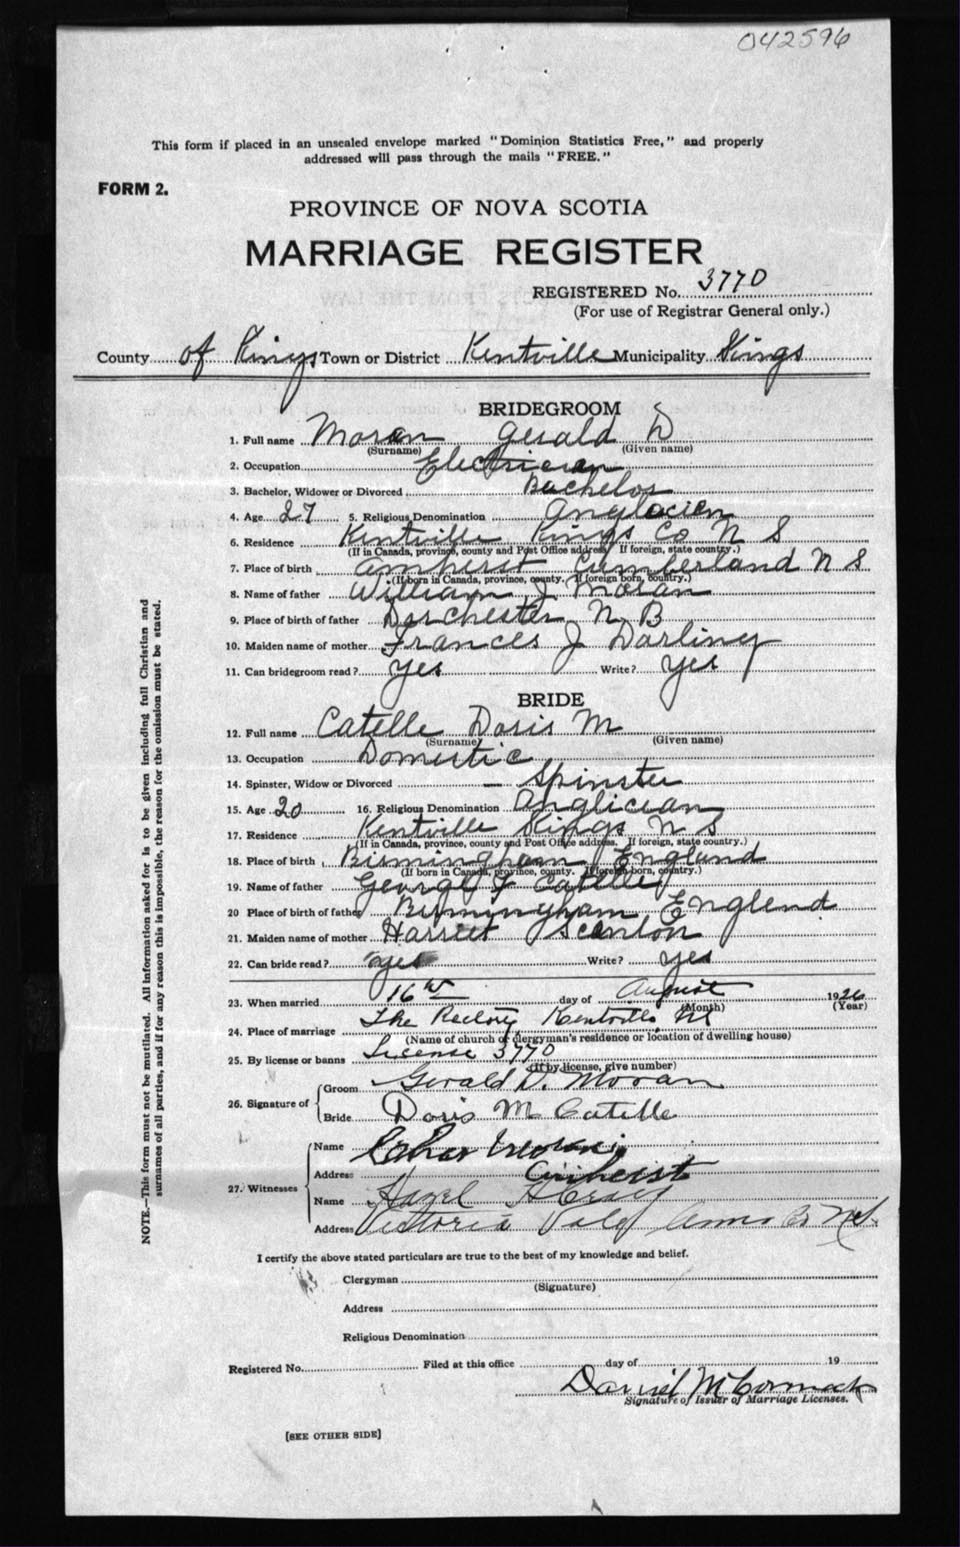 042596
This form if placed in an unsealed envelope marked "Dominion Statistics Free," and properly
addressed will pass through the mails "FREE."
FORM 2.
PROVINCE OF NOVA SCOTIA
MARRIAGE REGISTER
REGISTERED No. 3770
(For use of Registrar General only.)
County of Kings Town or District Kentville Municipality Kings
BRIDEGROOM
1. Full name Moran Gerald D
(Surname) (Given name)
2. Occupation Electrician
3. Bachelor, Widower or Divorced Bachelor
4. Age 27 5. Religious Denomination Anglocien
6. Residence Kentville Kings Co N S
(If in Canada, province, county and Post Office address. If foreign, state country.)
7. Place of birth Amherst Cumberland N S
(If born in Canada, province, county. If foreign born, country.)
8. Name of father William J. Moran
9. Place of birth of father Dorchester N. B
10. Maiden name of mother Frances J Darling
11. Can bridegroom read? yes Write? yes
BRIDE
12. Full name Catelle Doris M
(Surname) (Given name)
13. Occupation Domestic
14. Spinster, Widow or Divorced — Spinster
15. Age 20 16. Religious Denomination Anglician
17. Residence Kentville Kings N S
(If in Canada, province, county and Post Office address. If foreign, state country.)
18. Place of birth Birmingham England
(If born in Canada, province, county. If foreign born, country.)
19. Name of father George F Catelle
20 Place of birth of father Birmingham Englend
21. Maiden name of mother Harriet Scanlon
22. Can bride read? yes Write? yes
23. When married 16th day of August 1926
(Month) (Year)
24. Place of marriage The Rectory Kentville NS
(Name of church or clergyman's residence or location of dwelling house)
25. By license or banns License 3770
(If by license, give number)
26. Signature of Groom Gerald D. Moran
Bride Doris M Catelle
27. Witnesses Name Moran
Address Amherst
Name Hazel
Address Victoria Vale Anna Co N.S.
I certify the above stated particulars are true to the best of my knowledge and belief.
Clergyman
(Signature)
Address
Religious Denomination
Registered No. Filed at this office day of 19
Daniel McCormack
Signature of Issuer of Marriage Licenses.
[SEE OTHER SIDE]
NOTE.—This form must not be mutilated. All information asked for is to be given including full Christian and
surnames of all parties, and if for any reason this is impossible, the reason for the omission must be stated.